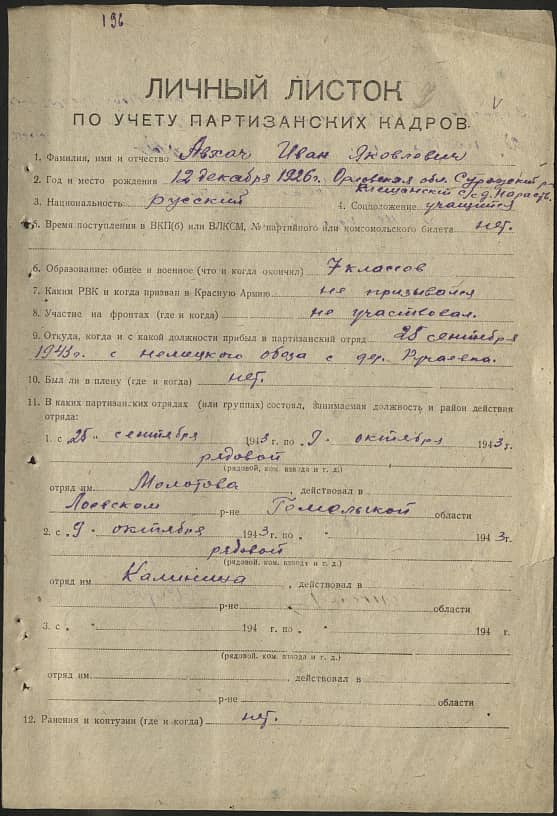 196
ЛИЧНЫЙ ЛИСТОК
ПО УЧЕТУ ПАРТИЗАНСКИХ КАДРОВ
1. Фамилия, имя и отчество Авхач Иван Яковлевич
2. Год и место рождения 12 декабря 1926г. Орловская обл. Суражский р-
3. Национальность русский 4. Соцположение учащийся
5. Время поступления в ВКП(б) или ВЛКСМ, № партийного или комсомольского билета нет.
6. Образование: общее и военное (что и когда окончил) 7 классов
7. Каким РВК и когда призван в Красную Армию не призывался
8. Участие на фронтах (где и когда) не участвовал.
9. Откуда, когда и с какой должности прибыл в партизанский отряд 25 сентября
1943г. с немецкого обоза с дер. Ручаевка.
10. Был ли в плену (где и когда) нет.
11. В каких партизанских отрядах (или группах) состоял, занимаемая должность и район действия
отряда:
1. с 25 " сентября 1943 г. по " 9. " октября 1943 г.
рядовой
(рядовой, ком. взвода и т. д.)
отряд им. Молотова, действовал в
Лоевском р-не Гомельской области
2. с " 9. " октября 1943 г. по " " 1943 г.
рядовой
(рядовой, ком. взвода и т. д.)
отряд им Калинина, действовал в
р-не области
3. с " " 194 г. по " " 194 г.
(рядовой, ком. взвода и т. д.)
отряд им. , действовал в
р-не области
12. Ранения и контузии (где и когда) нет.